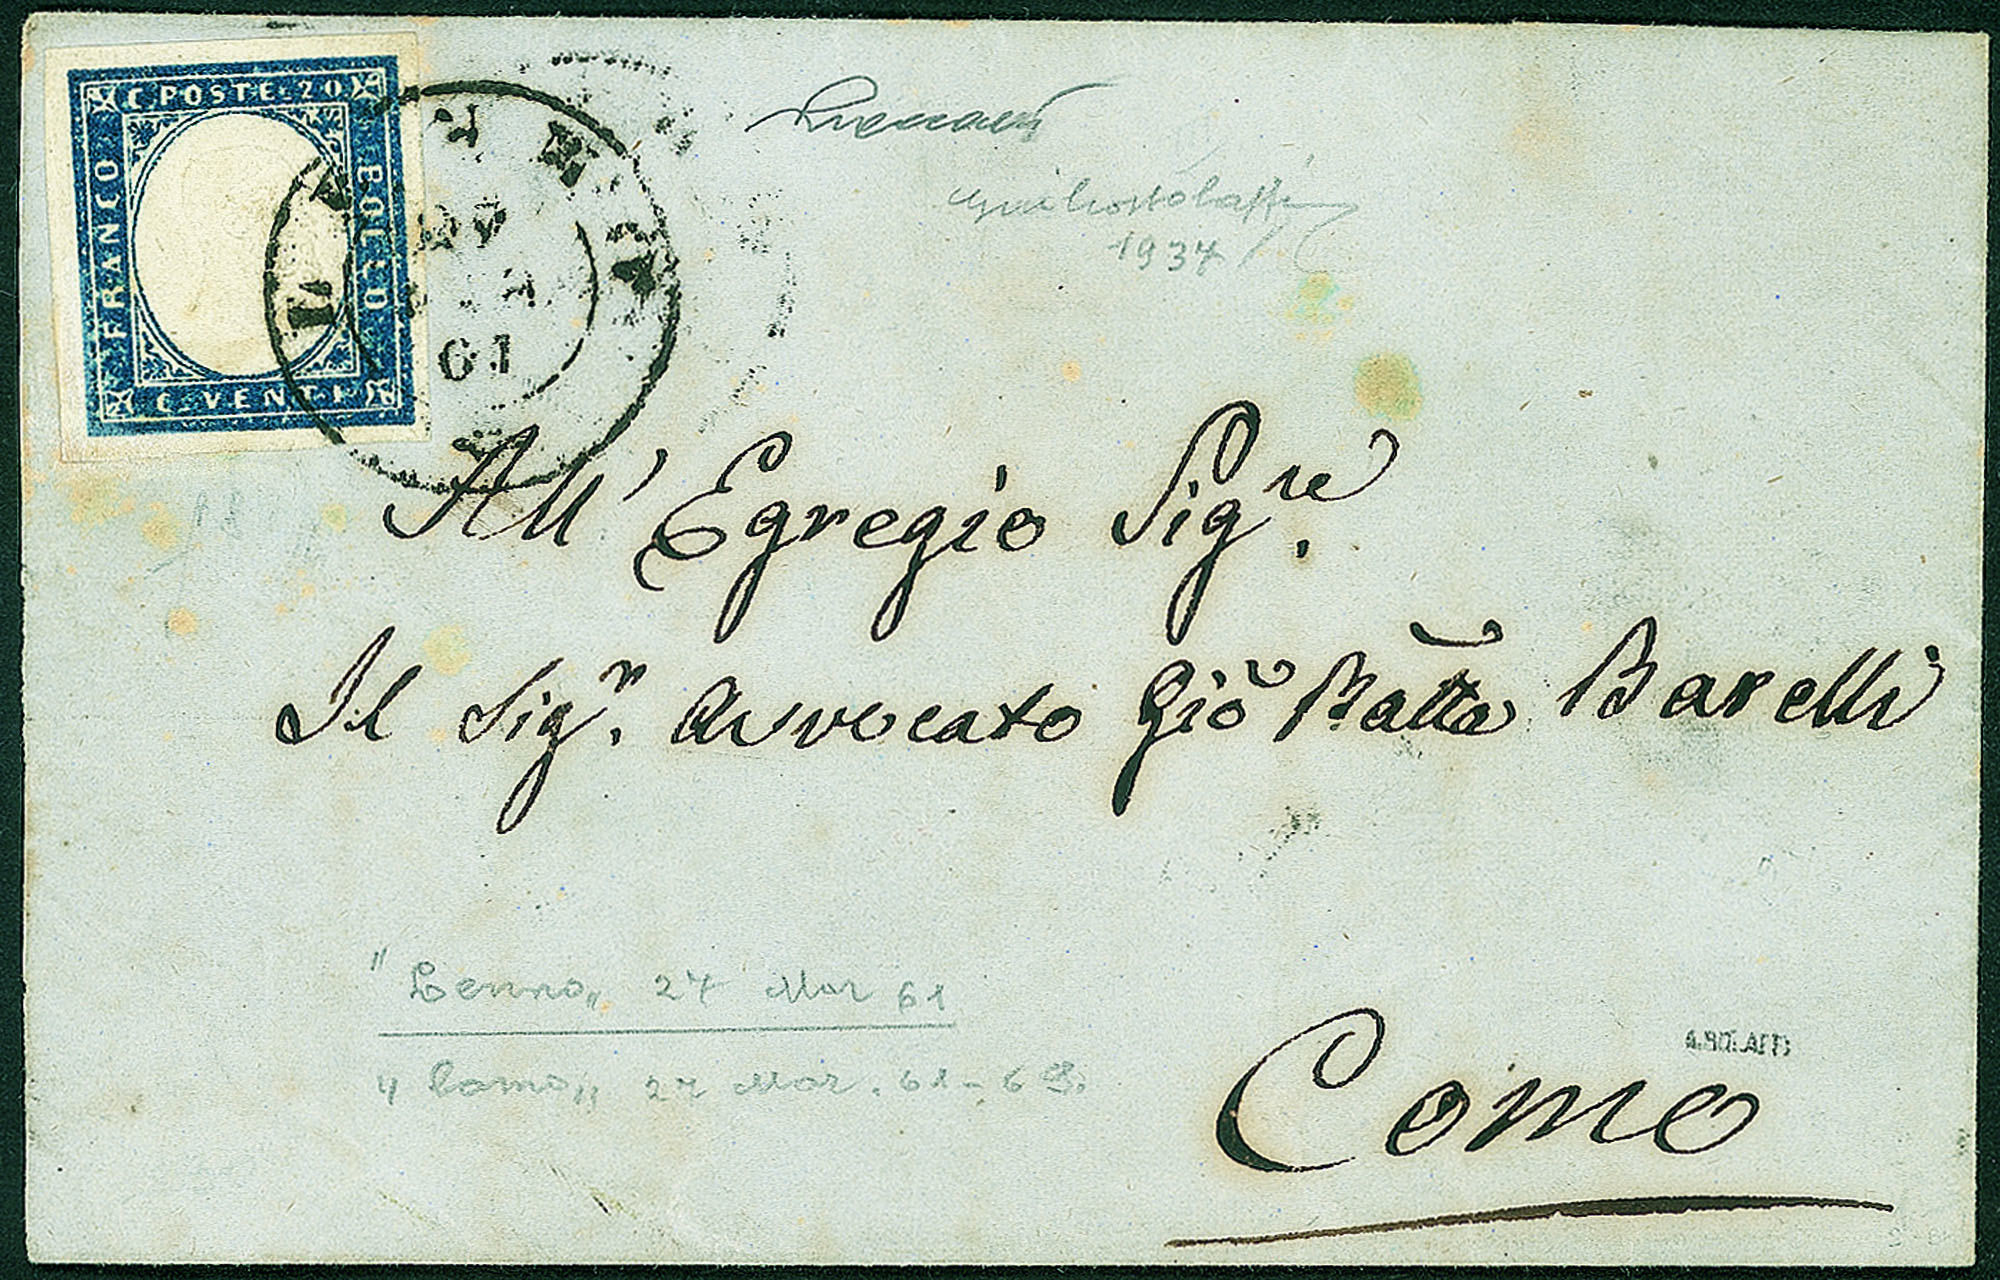 C. POSTE. 20
FRANCO
BOLLO
C. VENTI
61
1937
All' Egregio Sig.re
Il Sig.r Avvocato Gio Batta Barelli
"Lenno„ 27 Mar 61
„ Como „ 27 Mar. 61 - 6 S.
A. BOLAFFI
Como